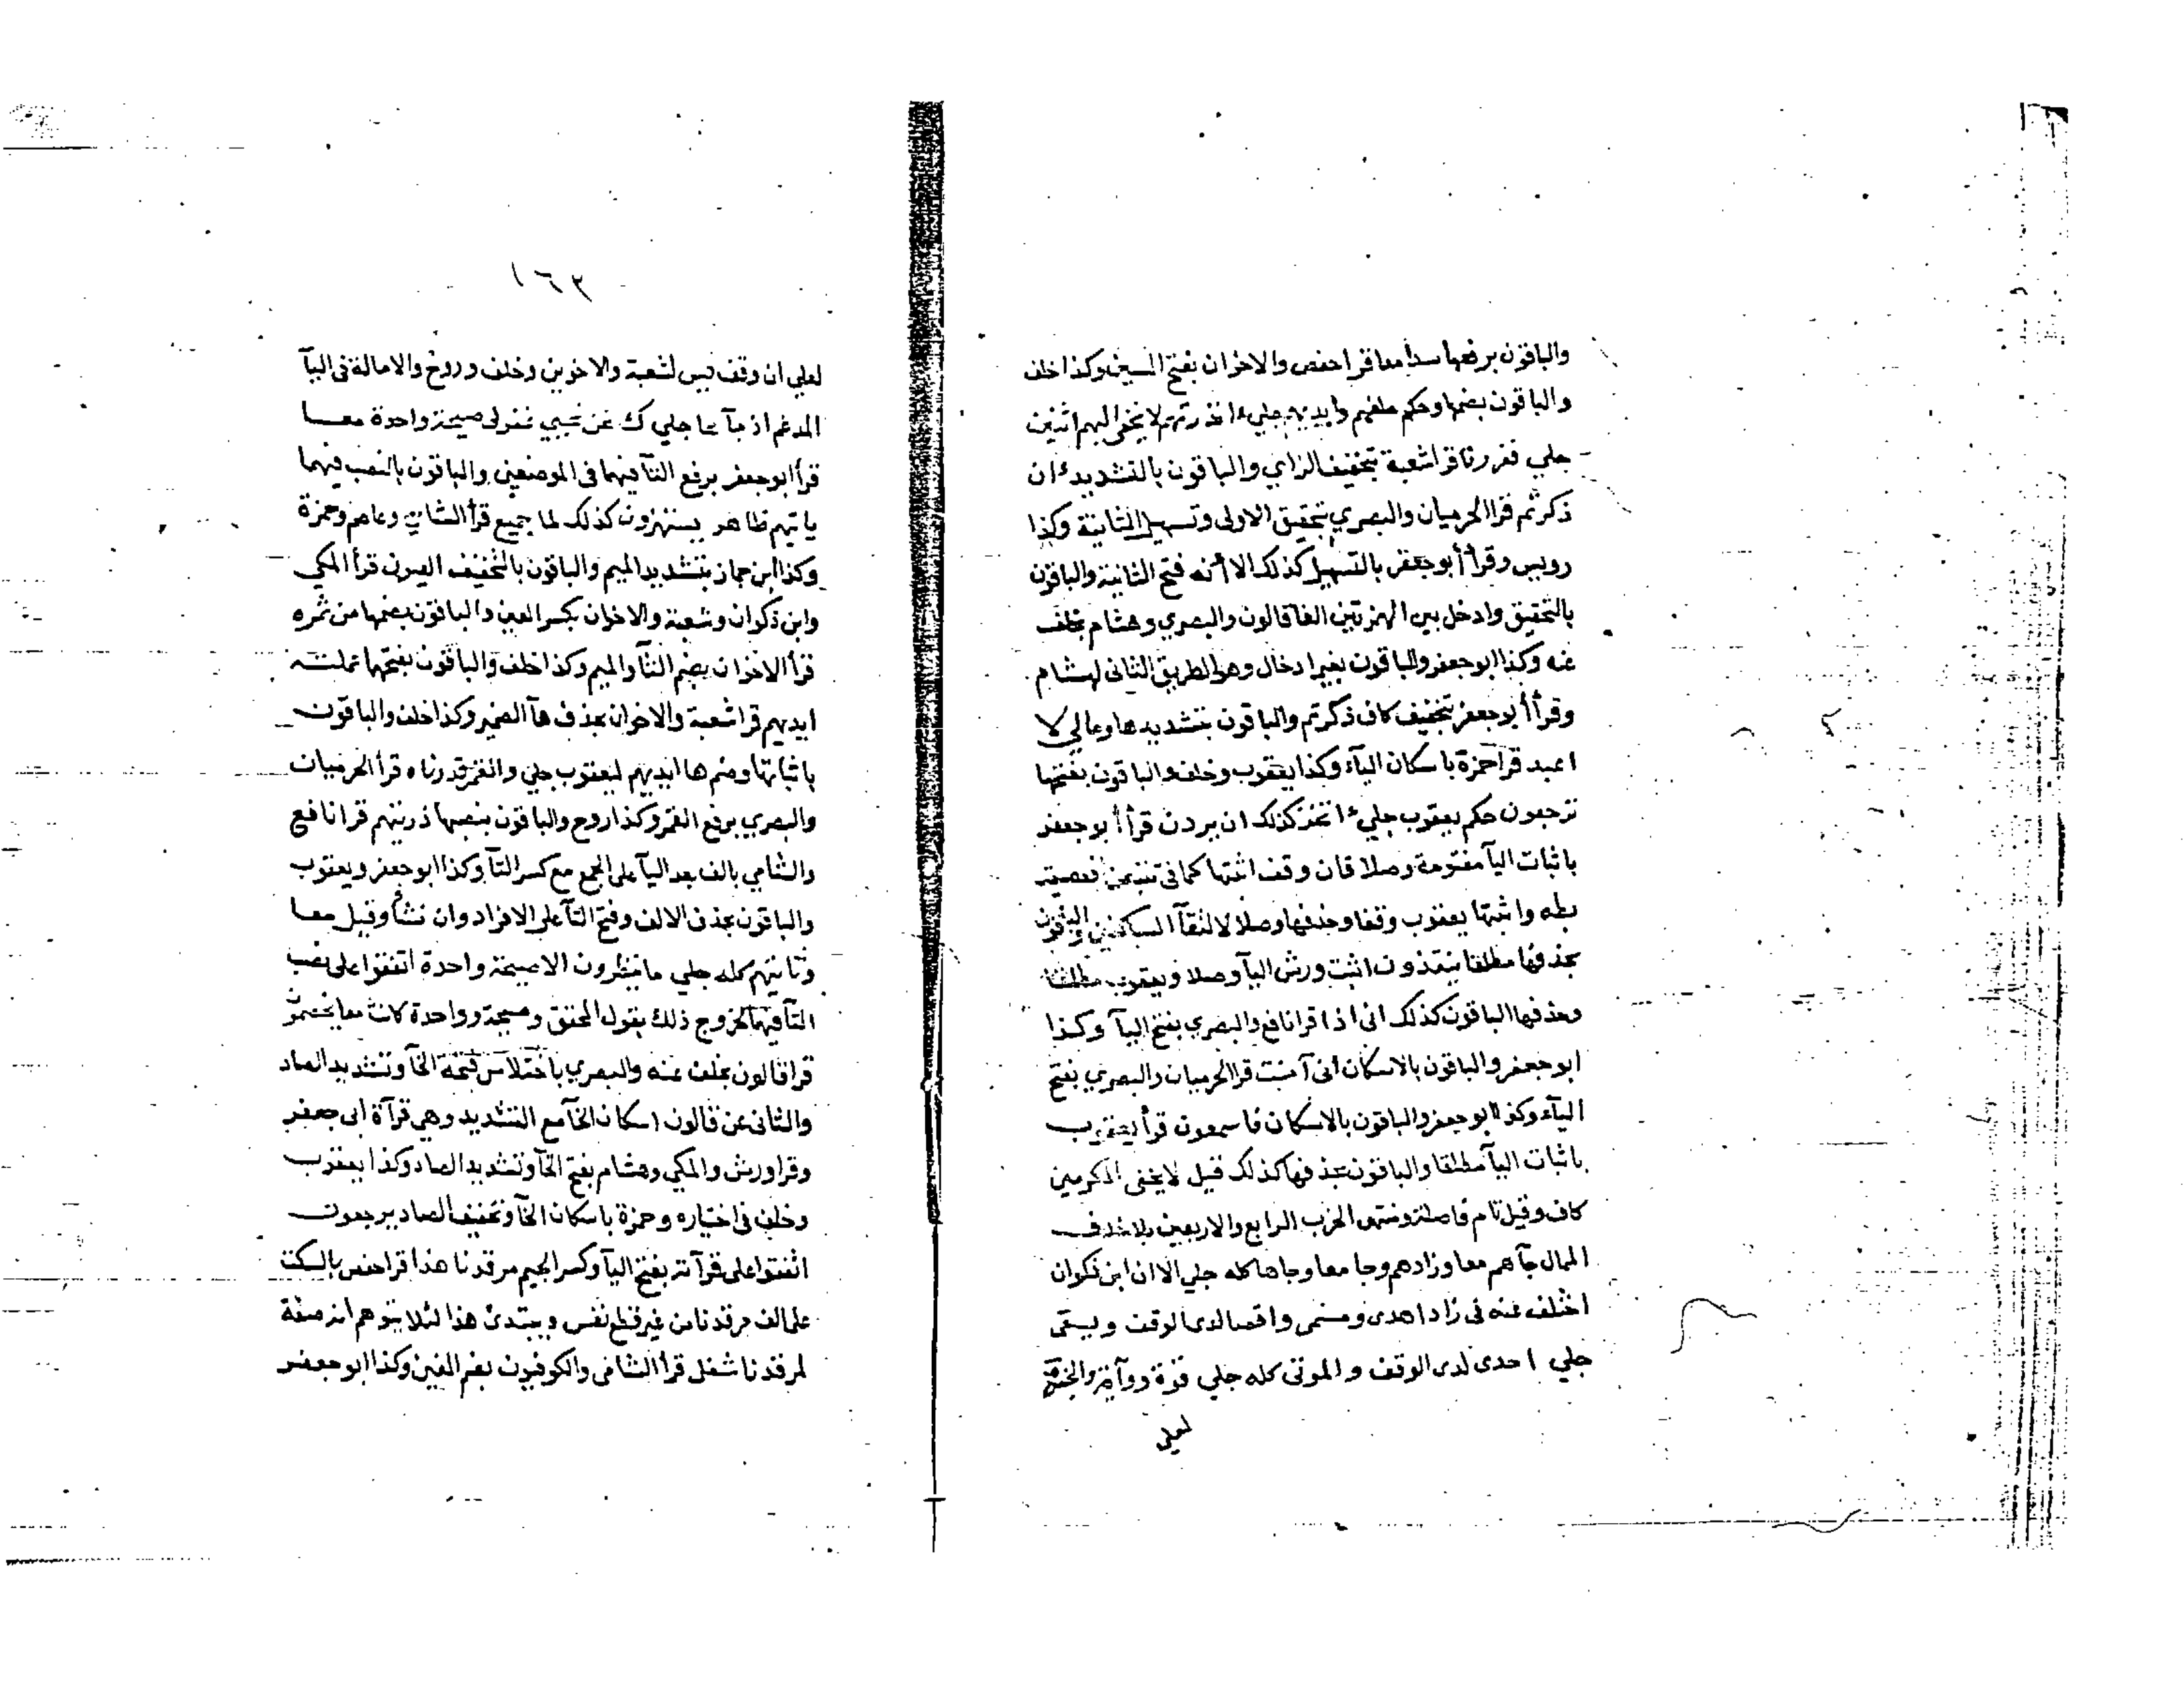 والباقون برفعها سدا معا قرا حفص والاخوان بفتح السين وكذا خلف
والباقون بضمها وحكم خلفهم وايديهم جلي ءانذرتهم لا يخفى اليهم اثنين
جلي فعززنا قرا شعبة بتخفيف الزاي والباقون بالتشديد ءان
ذكرتم قرا الحرميان والبصري بتحقيق الاولى وتسهيل الثانية وكذا
رويس وقرأ أبوجعفر بالتسهيل كذلك الا أنه فتح الثانية والباقون
بالتحقيق وادخل بين الهمزتين الفا قالون والبصري وهشام بخلف
عنه وكذا ابوجعفر والباقون بغير ادخال وهو الطريق الثانى لهشام
وقرأ أبوجعفر بتخفيف كاف ذكرتم والباقون بتشديدها ومالي لا
اعبد قرا حمزة باسكان الياء وكذا يعقوب وخلف والباقون بفتحها
ترجعون حكم يعقوب جلي ءاتخذ كذلك ان يردن قرأ أبوجعفر
باثبات اليآ مفتوحة وصلا فان وقف اثبتها كما فى تتبعن افعصيت
بطه واثبتها يعقوب وقفا وحذفها وصلا لالتقآ الساكنين والباقون
بحذفها مطلقا ينقذون اثبت ورش اليآ وصلا ويعقوب مطلقا
وحذفها الباقون كذلك انى اذا قرا نافع والبصري بفتح اليآ وكذا
ابوجعفر والباقون بالاسكان انى آمنت قرا الحرميان والبصري بفتح
الياء وكذا ابوجعفر والباقون بالاسكان فاسمعون قرأ يعقوب
باثبات اليآ مطلقا والباقون بحذفها كذلك قيل لا يخفى المكرمين
كاف وقيل تام فاصلة ومنتهى الحزب الرابع والاربعين بلا خلاف
الممال جآهم معا وزادهم وجا معا وجاها كله جلي الا ان ابن ذكوان
اختلف عنه فى زاد اهدى ومسمى واقصا لدى الوقف ويسعى
جلي احدى لدى الوقف والموتى كله جلي قوة ودآبة والجنة
لعلي
١٦٣
لعلي ان وقف يس لشعبة والاخوين وخلف وروح والامالة فى اليآ
المدغم اذ جآها جلي ك نحن نحيي غفرلى صيحة واحدة معا
قرأ ابوجعفر برفع التآ فيهما فى الموضعين والباقون بالنصب فيهما
ياتيهم ظاهر يستهزون كذلك لما جميع قرأ الشامي وعاصم وحمزة
وكذا ابن جماز بتشديد الميم والباقون بالتخفيف العيون قرأ المكي
وابن ذكوان وشعبة والاخوان بكسر العين والباقون بضمها من ثمره
قرأ الاخوان بضم الثآ والميم وكذا خلف والباقون بفتحها عملته
ايديهم قرا شعبة والاخوان بحذف هآ الضمير وكذا خلف والباقون
باثباتها وضم ها ايديهم ليعقوب جلي والقمر قدرناه قرأ الحرميان
والبصري برفع القمر وكذا روح والباقون بنصبها ذريتهم قرا نافع
والشامي بالف بعد اليآ على الجمع مع كسر التآ وكذا ابوجعفر ويعقوب
والباقون بحذف الالف وفتح التآ على الافراد وان نشأ وقيل معا
وتاتيهم كله جلي ما ينظرون الا صيحة واحدة اتفقوا على نصب
التآ فيها لخروج ذلك بقول المحقق وصيحة وواحدة كانت معا يخصمون
قرا قالون بخلف عنه والبصري باختلاس فتحة الخآ وتشديد الصاد
والثانى عن قالون اسكان الخآ مع التشديد وهي قرآة ابى جعفر
وقرا ورش والمكي وهشام بفتح الخآ وتشديد الصاد وكذا يعقوب
وخلف فى اختياره وحمزة باسكان الخآ وتخفيف الصاد يرجعون
اتفقوا على قرآته بفتح اليآ وكسر الجيم مرقدنا هذا قرا حفص بالسكت
على الف مرقدنا من غير قطع نفس ويبتدئ هذا لئلا يتوهم انه صفة
لمرقدنا شغل قرأ الشامى والكوفيون بضم الغين وكذا ابوجعفر